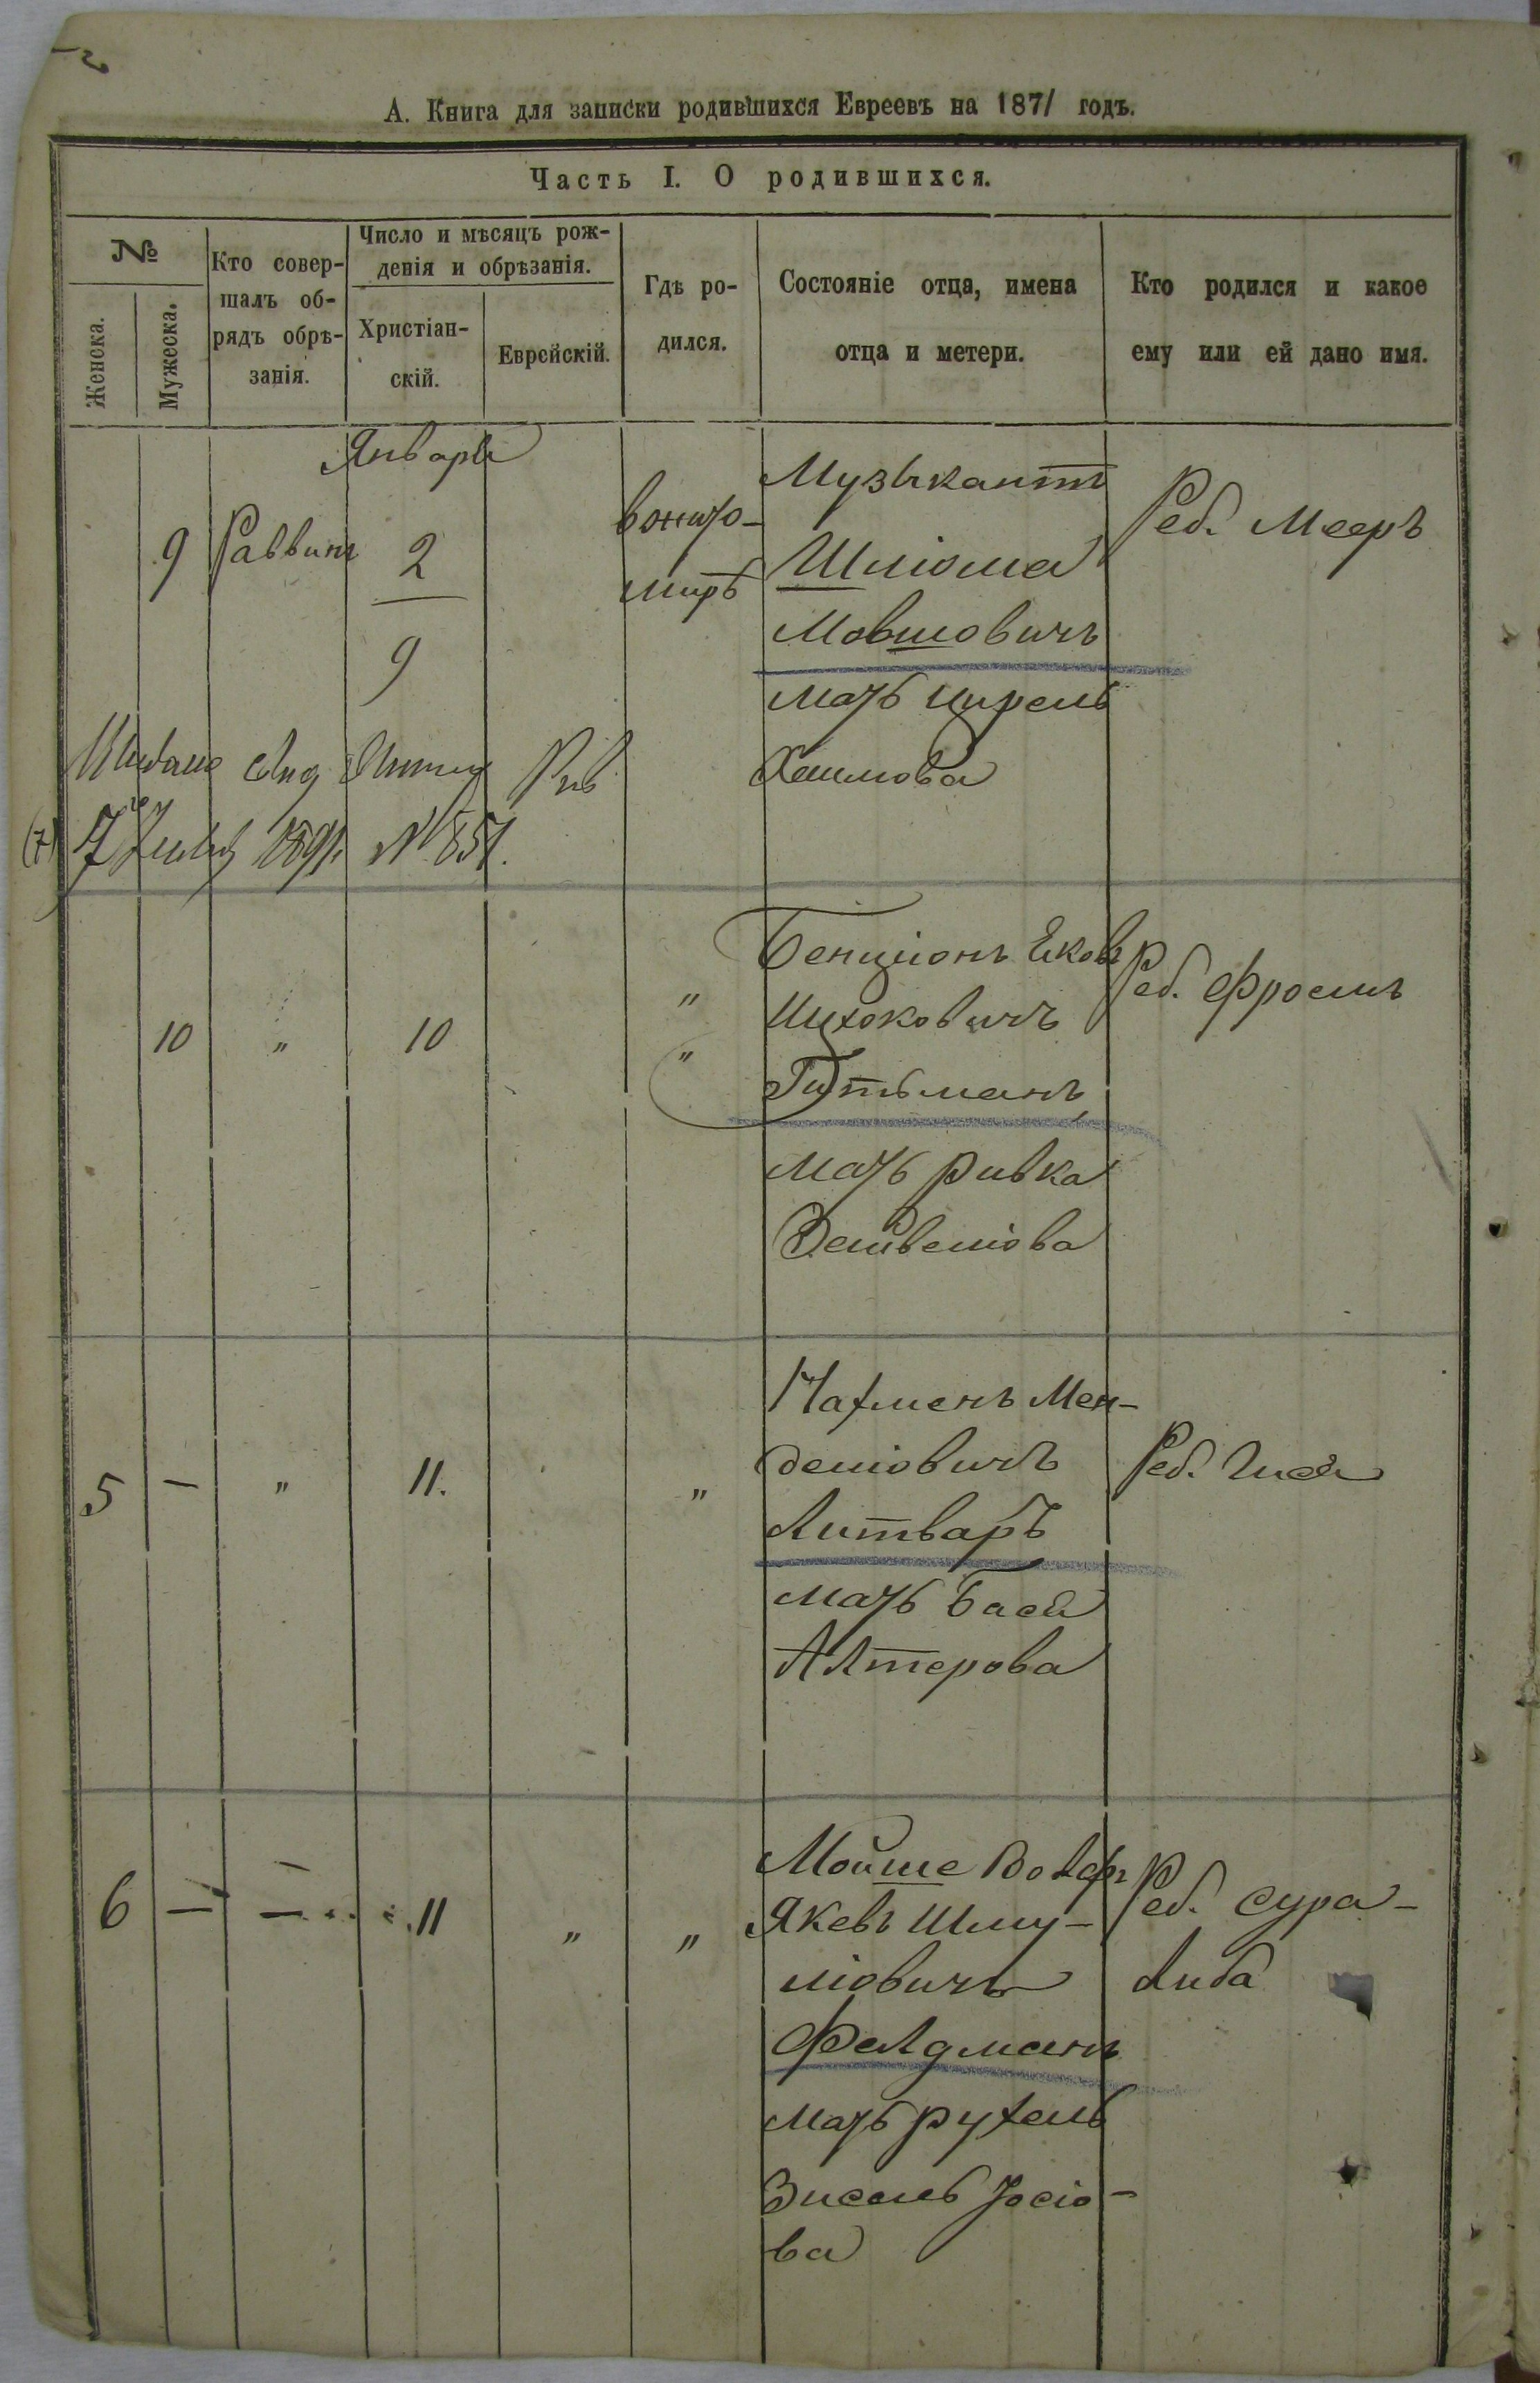 А. Книга для записки родившихся Евреевъ на 1871 годъ.
Часть I. О родившихся.
№
Женска.
Мужеска.
Кто совер-
шалъ об-
рядъ обрѣ-
занія.
Число и мѣсяцъ рож-
денія и обрѣзанія.
Христіан-
скій.
Еврейскій.
Гдѣ ро-
дился.
Состояніе отца, имена
отца и метери.
Кто родился и какое
ему или ей дано имя.
Январь
9 Раввинъ 2
9
въ
миръ
Музыкантъ
Шліома
Мовшовичъ
мать Цирель
Хаимова
Реб. Мееръ
(7) 7 1891. № 851.
10 " 10 "
"
Бенціонъ Яковъ
Ицхоковичъ
Гитьманъ,
мать Ривка
Зейвеліова
Реб. Фроемъ
5 — " 11. "
Нахменъ Мен-
деліовичъ
Литваръ
мать Бася
Алтерова
Реб. Хася
6 — — 11 " "
Мойше Волфъ
Якевъ Шму-
ліовичъ
Фелдманъ
мать Рухель
Зисель Іосіо-
ва
Реб. Сура-
Либа